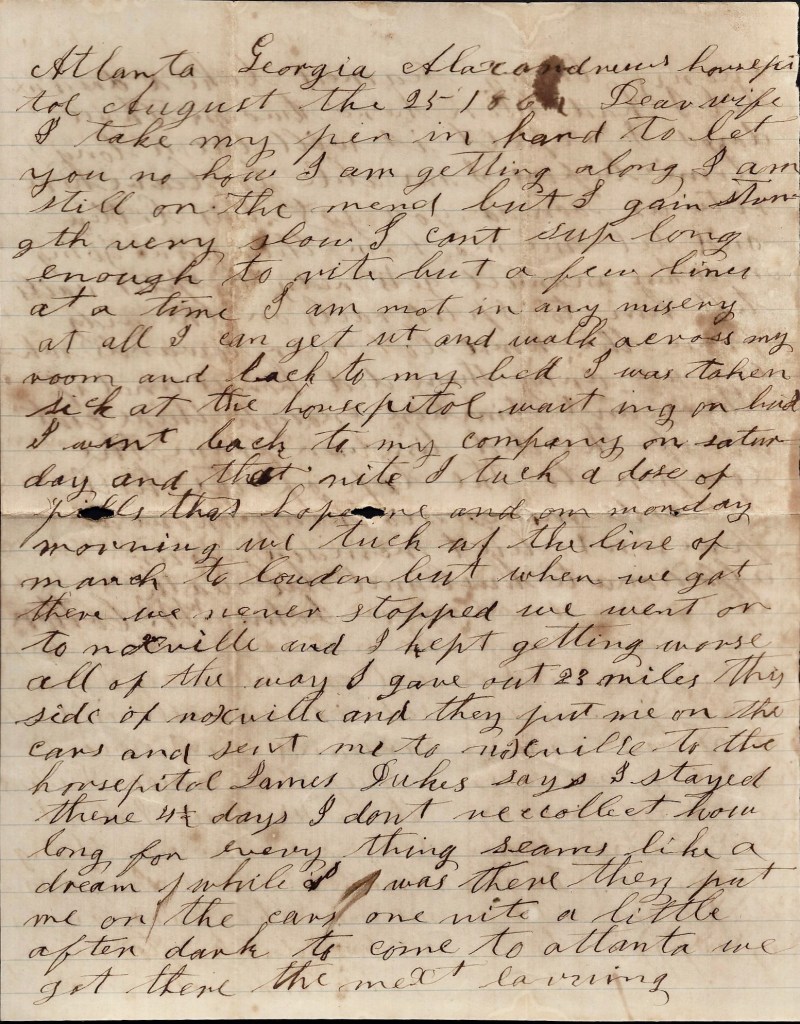 Atlanta Georgia Alaxandrews horsepi
tol August the 25 186 Dear wife
I take my pen in hand to let
you no how I am getting along I am
still on the mend but I gain stren
gth very slow I cant sup long
enough to rite but a few lines
at a time I am not in any misery
at all I can get ut and walk across my
room and back to my bed I was taken
sick at the horsepitol wait ing on bud
I went back to my company on satur
day and that nite I tuck a dose of
pills that hope me and on monday
morning we tuck up the line of
march to loudon but when we got
there we never stopped we went on
to noxville and I kept getting worse
all of the way I gave out 23 miles this
side of noxville and they put me on the
cars and sent me to noxville to the
horsepitol James Dukes says I stayed
there 4 days I dont reccollect how
long for every thing seams like a
dream while I was there they put
me on the cars one nite a little
after dark to come to atlanta we
got there the next